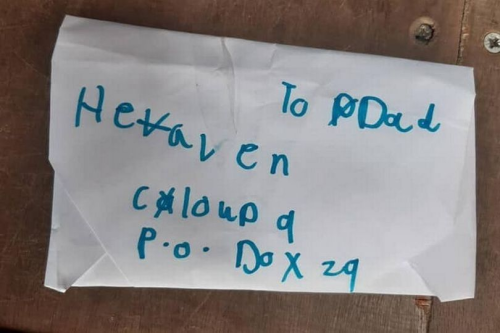 To Dad
Hevaven
Cloud 9
P.O. Dox 29